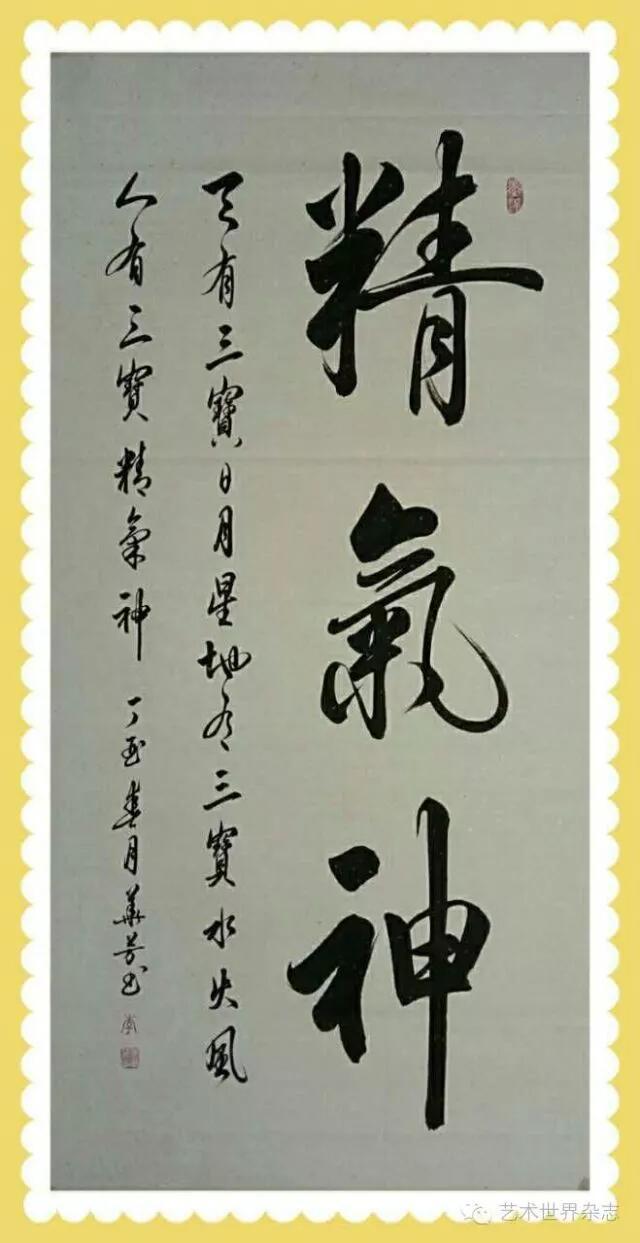 精氣神
天有三寶日月星地有三寶水火風
人有三寶精氣神 丁酉春月華芳書
艺术世界杂志